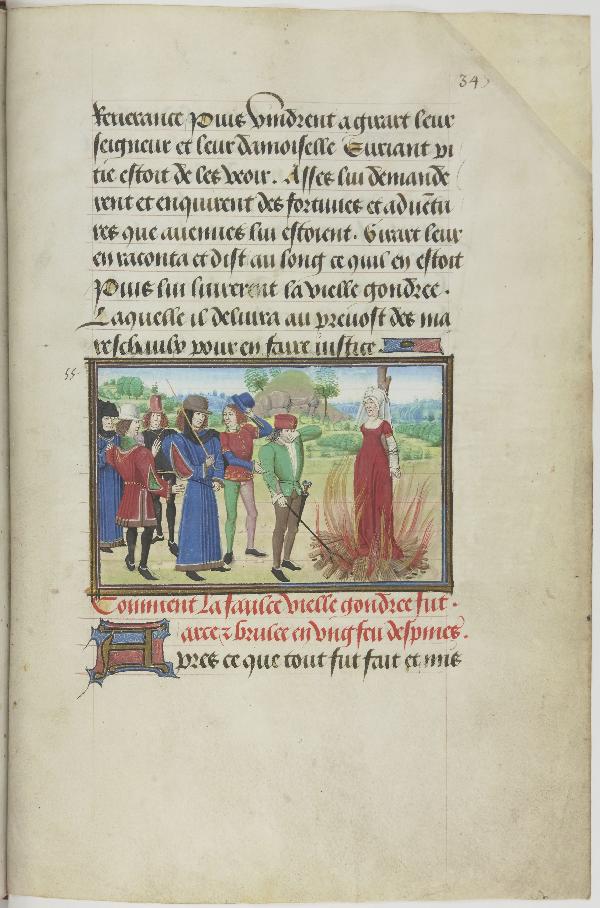 34
Reuerance Puis Vindrent a girart leur
seigneur et leur damoiselle Euriant pi
tie estoit de les veoir. Asses lui demande
rent et enquirent des fortunes et aduētu
res que auenues lui estoient. Girart leur
en raconta et dist au long ce quil en estoit
Puis lui liurerent la vielle gondree.
Laquelle il deliura au preuost des ma
reschaulx pour en faire iustice
55.
Comment La faulce vielle gondree fut.
arce ⁊ brulee en vng feu despines.
Apres ce que tout fut fait et mis